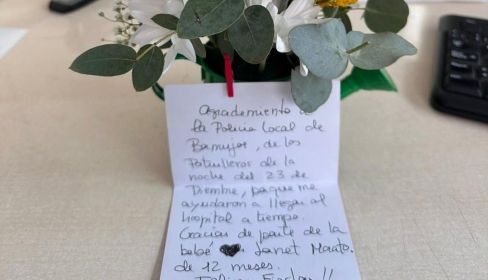 Agradecimiento a
la Policía Local de
Bormujos, de los
Patrulleros de la
noche del 23 de
Diciembre, porque me
ayudaron a llegar al
hospital a tiempo.
Gracias de parte de la
bebé Janet
de 12 meses.
Felices Fiestas!!